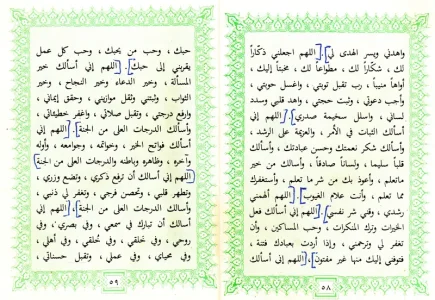 واهدني ويسر الهدى لي. اللهم اجعلني ذكّاراً
لك ، شكّاراً لك ، مطواعاً لك ، مخبتاً إليك ،
أواهاً منيباً ، رب تقبل توبتي ، واغسل حوبتي ،
وأجب دعوتي ، وثبت حجتي ، واهد قلبي وسدد
لساني ، واسلل سخيمة صدري. اللهم إني
أسألك الثبات في الأمر ، والعزيمة على الرشد ،
وأسألك شكر نعمتك وحسن عبادتك ، وأسألك
قلباً سليما ، ولساناً صادقاً ، وأسألك من خير
ماتعلم ، وأعوذ بك من شر ما تعلم ، وأستغفرك
مما تعلم ، وأنت علام الغيوب. اللهم ألهمني
رشدي ، وقني شر نفسي. اللهم إني أسألك فعل
الخيرات وترك المنكرات ، وحب المساكين ، وأن
تغفر لي وترحمني ، وإذا أردت بعبادك فتنة ،
فتوفني إليك منها غير مفتون ، اللهم إني أسألك
٥٨
حبك ، وحب من يحبك ، وحب كل عمل
يقربني إلى حبك. اللهم إني أسألك خير
المسألة ، وخير الدعاء وخير النجاح ، وخير
الثواب ، وثبتني وثقل موازيني ، وحقق إيماني ،
وارفع درجتي ، وتقبل صلاتي ، واغفر خطيئاتي ،
وأسألك الدرجات العلى من الجنة. اللهم إني
أسألك فواتح الخير ، وخواتمه ، وجوامعه ، وأوله
وآخره ، وظاهره وباطنه والدرجات العلى من الجنة
اللهم إني أسألك أن ترفع ذكري ، وتضع وزري ،
وتطهر قلبي ، وتحصن فرجي ، وتغفر لي ذنبي ،
وأسألك الدرجات العلى من الجنة ، اللهم إني
أسألك أن تبارك في سمعي ، وفي بصري ، وفي
روحي ، وفي خلقي ، وفي خُلقي ، وفي أهلي ،
وفي محياي ، وفي عملي ، وتقبل حسناتي ،
٥٩